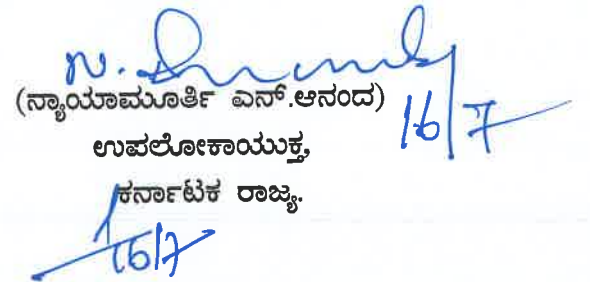 N. Anand
(ನ್ಯಾಯಾಮೂರ್ತಿ ಎನ್.ಆನಂದ) 16/7
ಉಪಲೋಕಾಯುಕ್ತ,
ಕರ್ನಾಟಕ ರಾಜ್ಯ.
16/7